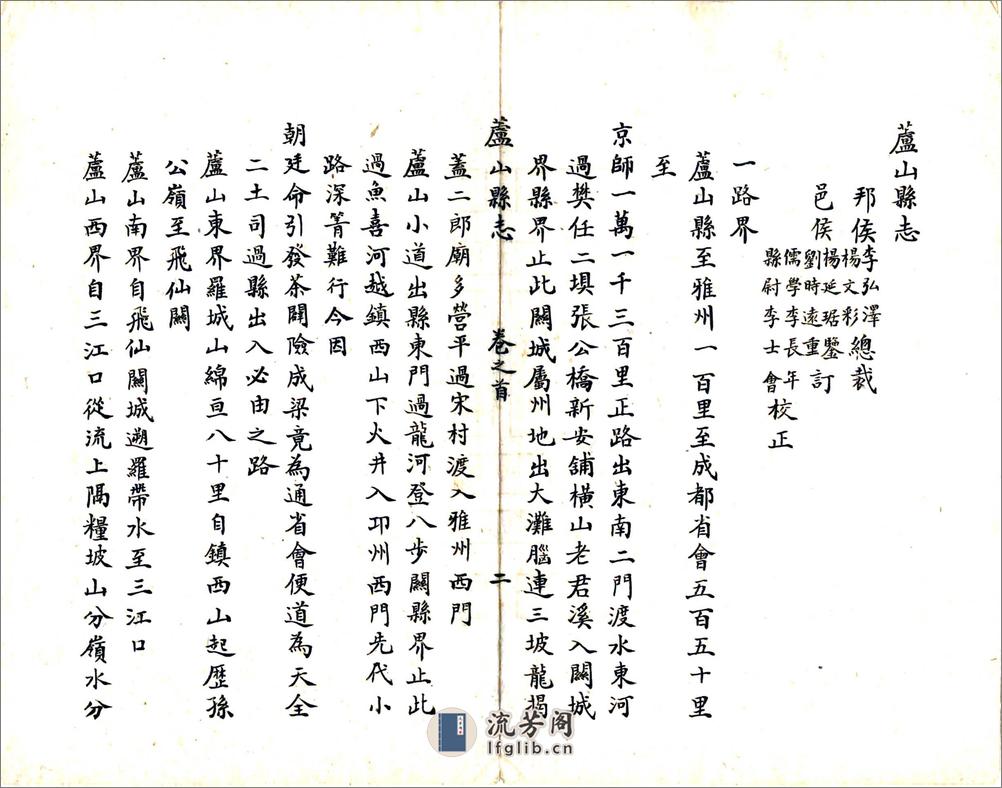 蘆山縣志
邦侯李弘澤楊文彩總裁
邑侯楊延琚劉時遠鑒重訂
儒學李長年縣尉李士會校正
一路界
蘆山縣至雅州一百里至成都省會五百五十里
至
京師一萬一千三百里正路出東南二門渡水東河
過樊任二垻張公橋新安舖橫山老君溪入關城
界縣界止此關城屬州地出大灘腦連三坡龍揭
蘆山縣志 卷之首 二
蓋二郎廟多營平過宋村渡入雅州西門
蘆山小道出縣東門過龍河登八步關縣界止此
過魚喜河越鎮西山下火井入卭州西門先代小
路深箐難行今因
朝廷命引發茶開險成梁竟為通省會便道為天全
二土司過縣出入必由之路
蘆山東界羅城山綿亘八十里自鎮西山起歷孫
公嶺至飛仙關
蘆山南界自飛仙關城遡羅帶水至三江口
蘆山西界自三江口從流上隔糧坡山分嶺水分
流芳阁
lfglib.cn